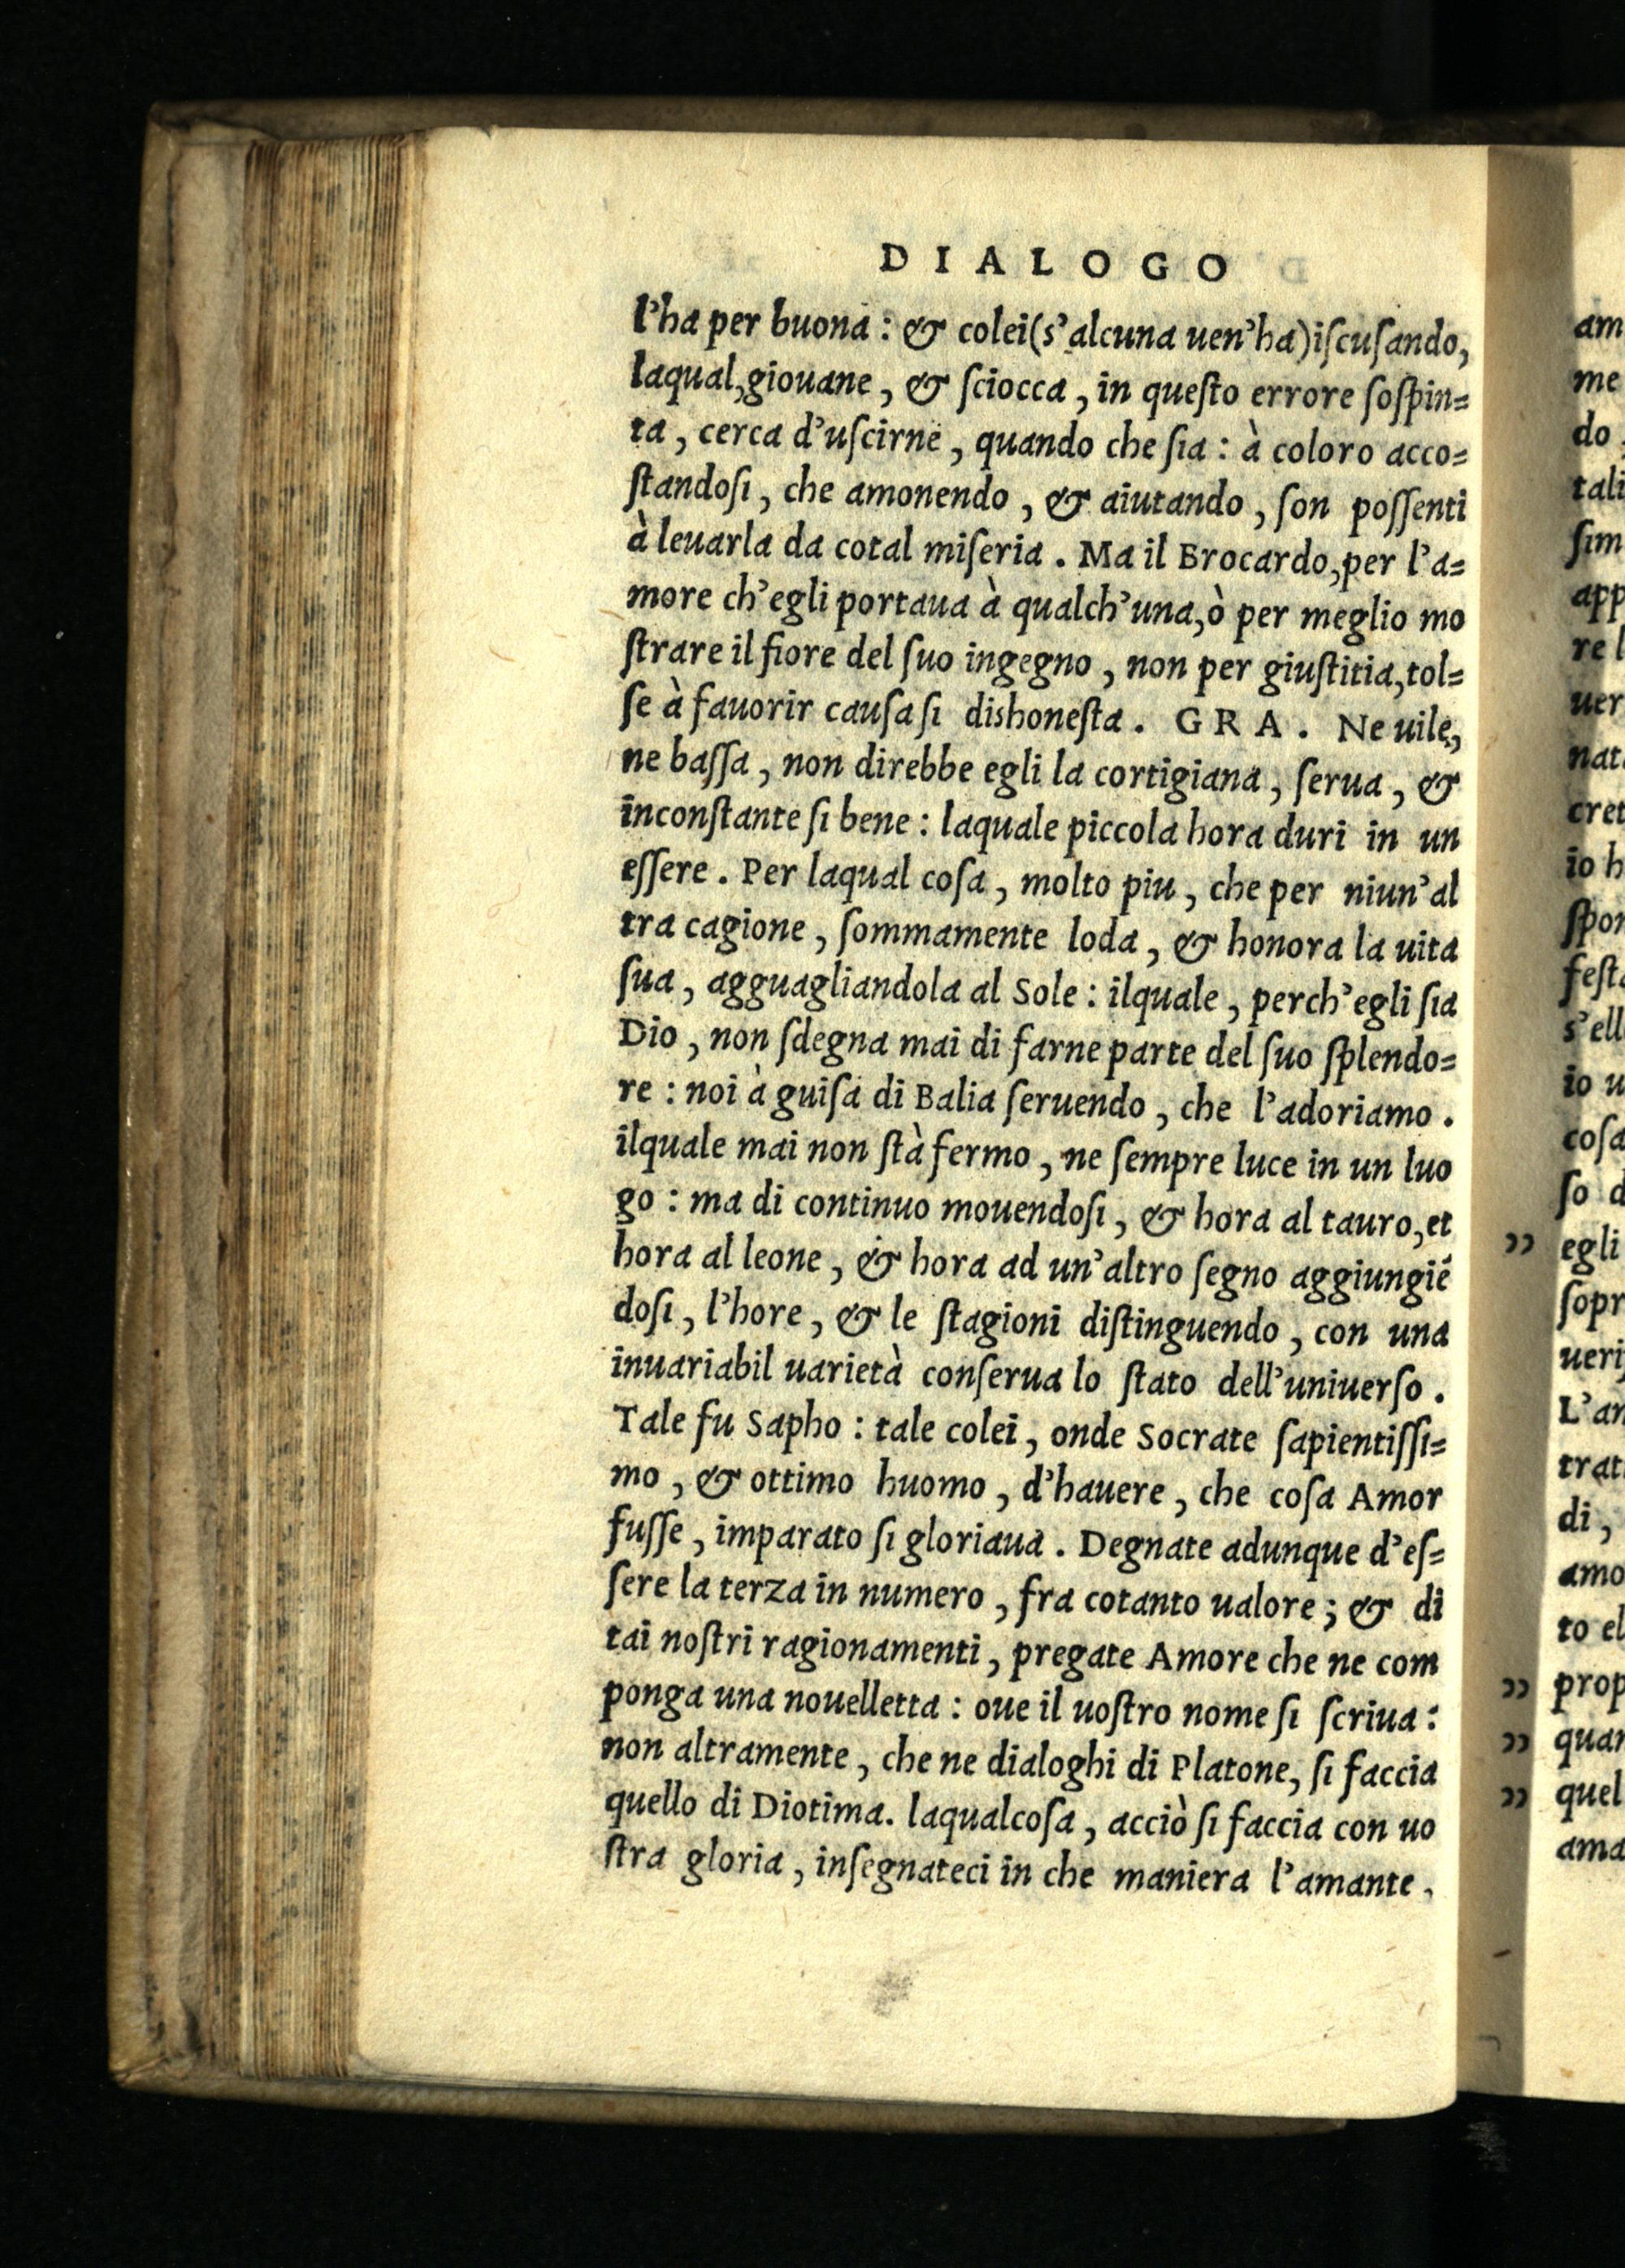 DIALOGO
l'ha per buona : & colei(s'alcuna uen'ha)iſcuſando,
laqual,giouane, & ſciocca, in queſto errore ſoſpin=
ta, cerca d'uſcirne, quando che ſia : à coloro acco=
ſtandoſi, che amonendo, & aiutando, ſon poſſenti
à leuarla da cotal miſeria. Ma il Brocardo,per l'a=
more ch'egli portaua à qualch'una,ò per meglio mo
ſtrare il fiore del ſuo ingegno, non per giuſtitia,tol=
ſe à fauorir cauſa ſi dishoneſta. GRA. Ne uile,
ne baſſa, non direbbe egli la cortigiana, ſerua, &
inconſtante ſi bene : laquale piccola hora duri in un
eſſere. Per laqual coſa, molto piu, che per niun'al
tra cagione, ſommamente loda, & honora la uita
ſua, agguagliandola al Sole : ilquale, perch'egli ſia
Dio, non ſdegna mai di farne parte del ſuo ſplendo=
re : noi à guiſa di Balia ſeruendo, che l'adoriamo.
ilquale mai non ſtà fermo, ne ſempre luce in un luo
go : ma di continuo mouendoſi, & hora al tauro,et
hora al leone, & hora ad un'altro ſegno aggiungiē
doſi, l'hore, & le ſtagioni diſtinguendo, con una
inuariabil uarietà conſerua lo ſtato dell'uniuerſo.
Tale fu Sapho : tale colei, onde Socrate ſapientiſſi=
mo, & ottimo huomo, d'hauere, che coſa Amor
fuſſe, imparato ſi gloriaua. Degnate adunque d'eſ=
ſere la terza in numero, fra cotanto ualore; & di
tai noſtri ragionamenti, pregate Amore che ne com
ponga una nouelletta : oue il uoſtro nome ſi ſcriua :
non altramente, che ne dialoghi di Platone, ſi faccia
quello di Diotima. laqualcoſa, acciò ſi faccia con uo
ſtra gloria, inſegnateci in che maniera l'amante.
am
me
do,
tali
ſim
app
re l
uer
nat
cret
io h
ſpon
feſt
s'ell
io u
coſa
ſo d
" egli
ſopr
ueri
L'an
trat
di,
amo
to el
" prop
" quan
" quel
ama